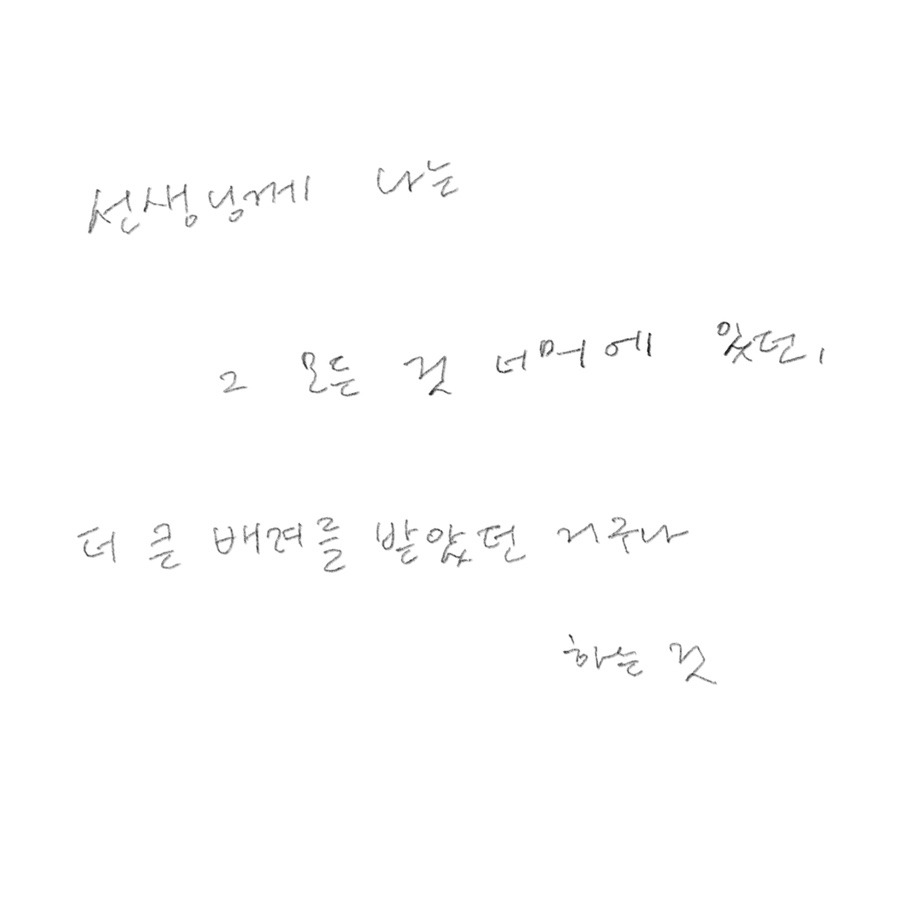 선생님께 나는
그 모든 것 너머에 있던,
더 큰 배려를 받았던 거구나
하는 것